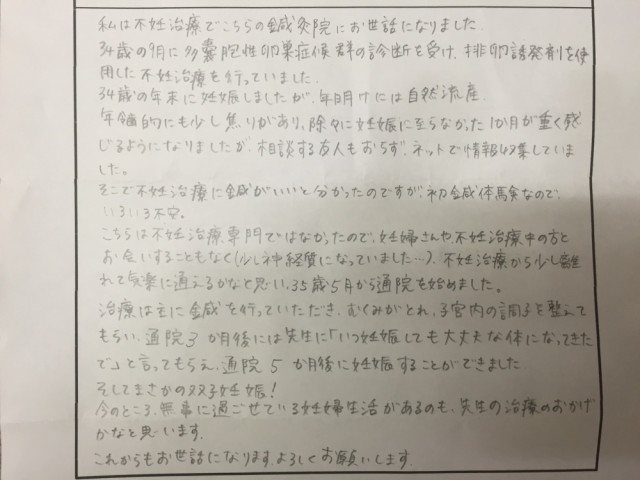 私は不妊治療でこちらの鍼灸院にお世話になりました.
34歳の9月に多嚢胞性卵巣症候群の診断を受け、排卵誘発剤を使
用した不妊治療を行っていました.
34歳の年末に妊娠しましたが、年明けには自然流産.
年齢的にも少し焦りがあり、除々に妊娠に至らなかった1か月が重く感
じるようになりましたが、相談する友人もおらず、ネットで情報収集していま
した。
そこで不妊治療に鍼がいいと分かったのですが、初鍼体馬矣なので、
いろいろ不安。
こちらは不妊治療専門ではなかったので、妊婦さんや不妊治療中の方と
お会いすることもなく(少し神経質になっていました…)、不妊治療から少し離
れて気楽に通えるかなと思い、35歳5月から通院を始めました。
治療は主に鍼を行っていただき、むくみがとれ、子宮内の調子を整えて
もらい、通院3か月後には先生に「いつ妊娠しても大丈夫な体になってきた
で」と言ってもらえ、通院5か月後に妊娠することができました
そしてまさかの双子妊娠!
今のところ、無事に過ごせている妊婦生活があるのも、先生の治療のおかげ
かなと思います.
これからもお世話になります。よろしくお願いします.